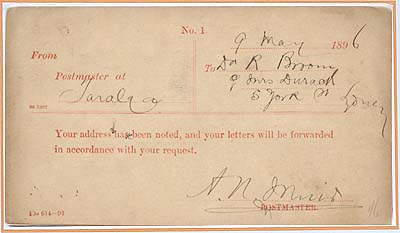 No. 1.
9 May 1896
From
To Dr R Broom
Postmaster at
c/o Mrs Durack
Taralga
5 York St Sydney
Your address has been noted, and your letters will be forwarded
in accordance with your request.
POSTMASTER.